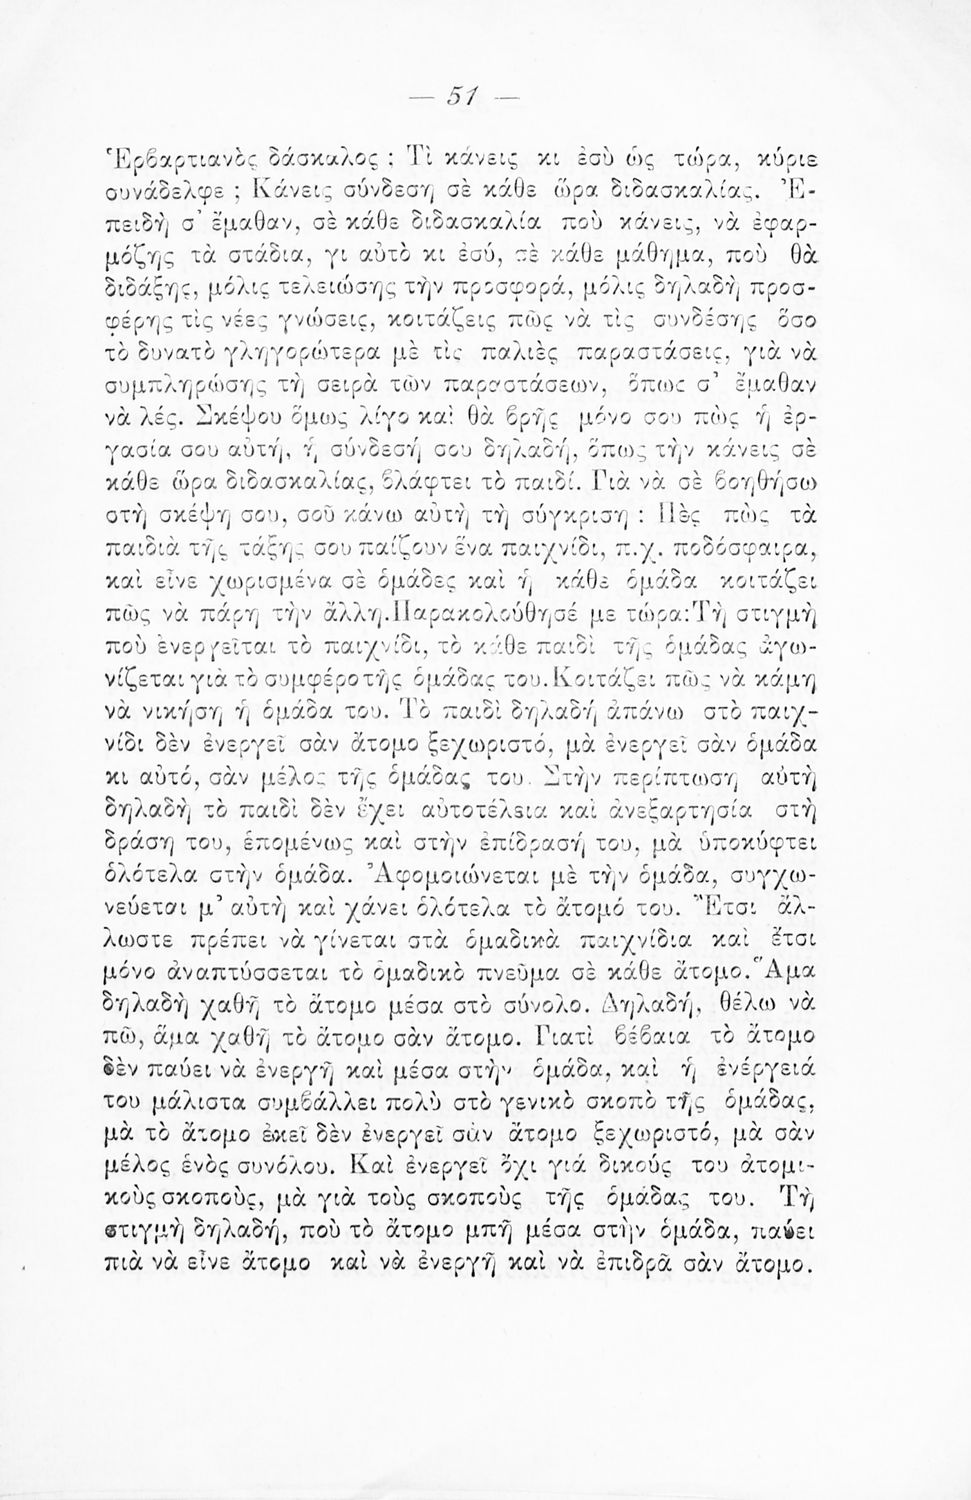 — 51 —
Ἑρβαρτιανὸς δάσκαλος : Τὶ κάνεις κι ἐσὺ ὡς τώρα, κύριε
συνάδελφε ; Κάνεις σύνδεση σὲ κάθε ὥρα διδασκαλίας. Ἐ-
πειδὴ σ᾿ ἔμαθαν, σὲ κάθε διδασκαλία ποὺ κάνεις, νὰ ἐφαρ-
μόζῃς τὰ στάδια, γι αὐτὸ κι ἐσύ, σὲ κάθε μάθημα, ποὺ θὰ
διδάξῃς, μόλις τελειώσῃς τὴν προσφορά, μόλις δηλαδὴ προσ-
φέρῃς τὶς νέες γνώσεις, κοιτάζεις πῶς νὰ τὶς συνδέσῃς ὅσο
τὸ δυνατὸ γληγορώτερα μὲ τὶς παλιὲς παραστάσεις, γιὰ νὰ
συμπληρώσῃς τὴ σειρὰ τῶν παραστάσεων, ὅπως σ᾿ ἔμαθαν
νὰ λές. Σκέψου ὅμως λίγο καὶ θὰ βρῇς μόνο σου πὼς ἡ ἐρ-
γασία σου αὐτή, ἡ σύνδεσή σου δηλαδή, ὅπως τὴν κάνεις σὲ
κάθε ὥρα διδασκαλίας, βλάφτει τὸ παιδί. Γιὰ νὰ σὲ βοηθήσω
στὴ σκέψη σου, σοῦ κάνω αὐτὴ τὴ σύγκριση : Πὲς πὼς τὰ
παιδιὰ τῆς τάξης σου παίζουν ἕνα παιχνίδι, π.χ. ποδόσφαιρα,
καὶ εἶνε χωρισμένα σὲ ὁμάδες καὶ ἡ κάθε ὁμάδα κοιτάζει
πῶς νὰ πάρῃ τὴν ἄλλη. Παρακολούθησέ με τώρα: Τὴ στιγμὴ
ποὺ ἐνεργεῖται τὸ παιχνίδι, τὸ κάθε παιδὶ τῆς ὁμάδας ἀγω-
νίζεται γιὰ τὸ συμφέρο τῆς ὁμάδας του. Κοιτάζει πῶς νὰ κάμῃ
νὰ νικήσῃ ἡ ὁμάδα του. Τὸ παιδὶ δηλαδὴ ἀπάνω στὸ παιχ-
νίδι δὲν ἐνεργεῖ σὰν ἄτομο ξεχωριστό, μὰ ἐνεργεῖ σὰν ὁμάδα
κι αὐτό, σὰν μέλος τῆς ὁμάδας του. Στὴν περίπτωση αὐτὴ
δηλαδὴ τὸ παιδὶ δὲν ἔχει αὐτοτέλεια καὶ ἀνεξαρτησία στὴ
δράση του, ἑπομένως καὶ στὴν ἐπίδρασή του, μὰ ὑποκύφτει
ὁλότελα στὴν ὁμάδα. Ἀφομοιώνεται μὲ τὴν ὁμάδα, συγχω-
νεύεται μ᾿ αὐτὴ καὶ χάνει ὁλότελα τὸ ἄτομό του. Ἔτσι ἄλ-
λωστε πρέπει νὰ γίνεται στὰ ὁμαδικὰ παιχνίδια καὶ ἔτσι
μόνο ἀναπτύσσεται τὸ ὁμαδικὸ πνεῦμα σὲ κάθε ἄτομο. Ἅμα
δηλαδὴ χαθῇ τὸ ἄτομο μέσα στὸ σύνολο. Δηλαδή, θέλω νὰ
πῶ, ἅμα χαθῇ τὸ ἄτομο σὰν ἄτομο. Γιατὶ βέβαια τὸ ἄτομο
δὲν παύει νὰ ἐνεργῇ καὶ μέσα στὴν ὁμάδα, καὶ ἡ ἐνέργειά
του μάλιστα συμβάλλει πολὺ στὸ γενικὸ σκοπὸ τῆς ὁμάδας,
μὰ τὸ ἄτομο ἐκεῖ δὲν ἐνεργεῖ σὰν ἄτομο ξεχωριστό, μὰ σὰν
μέλος ἑνὸς συνόλου. Καὶ ἐνεργεῖ ὄχι γιά δικούς του ἀτομι-
κοὺς σκοποὺς, μὰ γιὰ τοὺς σκοποὺς τῆς ὁμάδας του. Τὴ
στιγμὴ δηλαδή, ποὺ τὸ ἄτομο μπῆ μέσα στὴν ὁμάδα, παύει
πιὰ νὰ εἶνε ἄτομο καὶ νὰ ἐνεργῇ καὶ νὰ ἐπιδρᾶ σὰν ἄτομο.